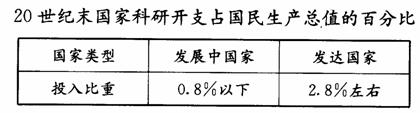 20世纪末国家科研开支占国民生产总值的百分比
国家类型 发展中国家 发达国家
投入比重 0.8%以下 2.8%左右